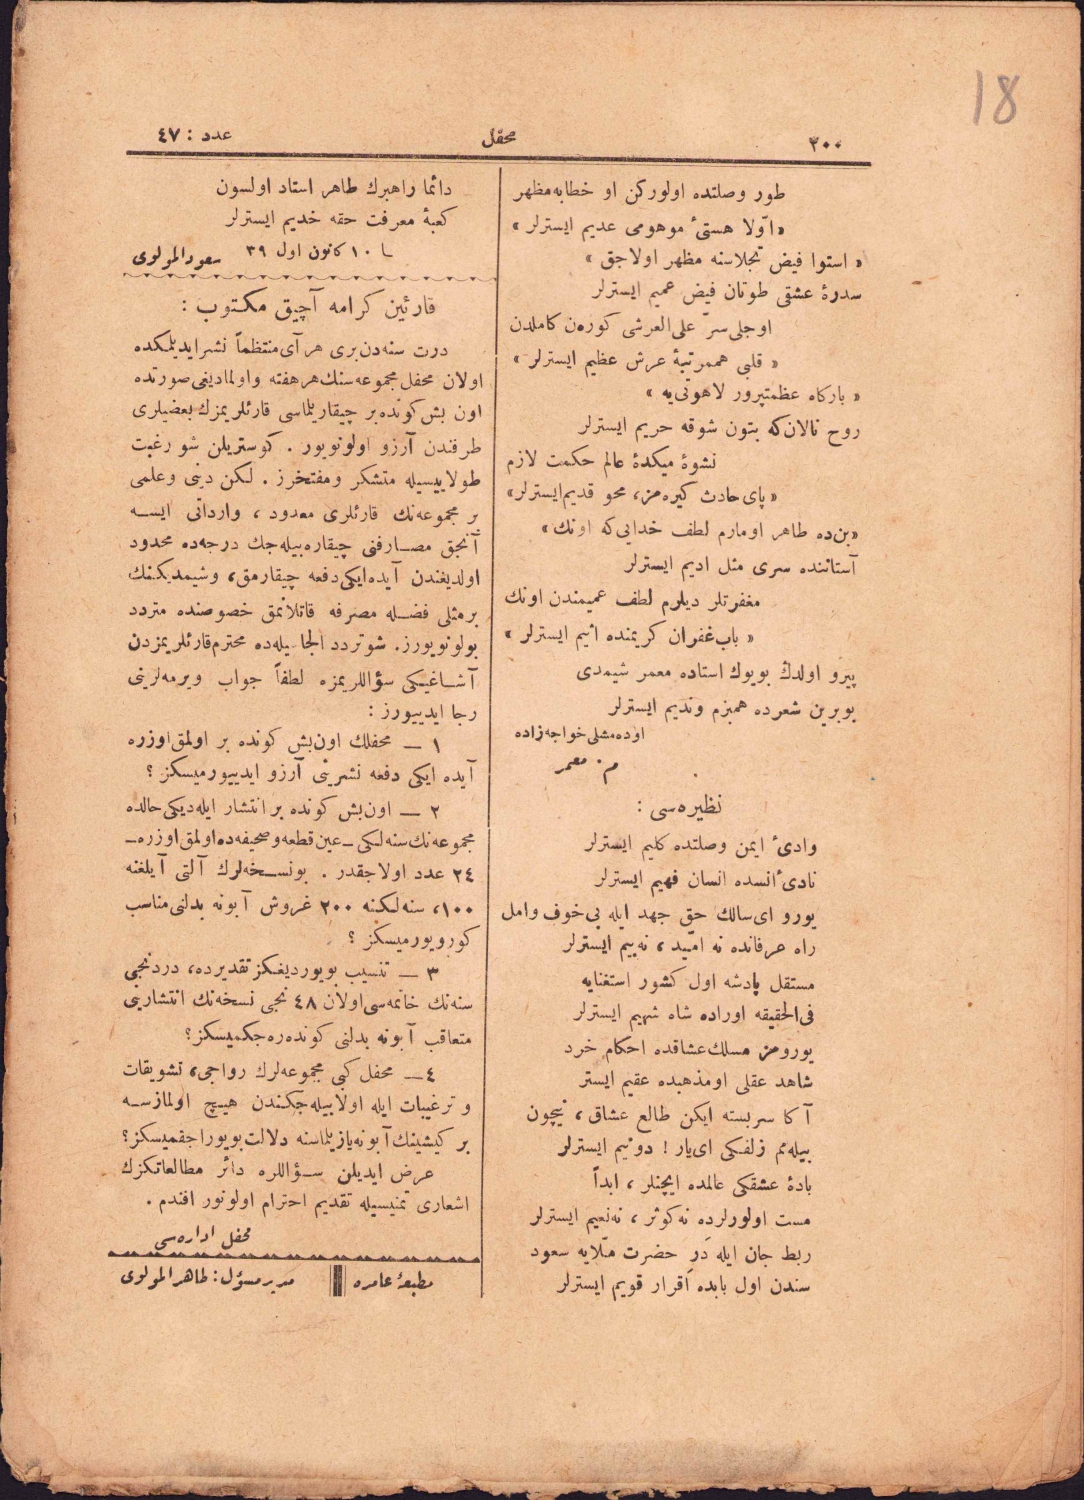 18
٣٠٠
محفل
عدد : ٤٧
طور وصلتده اولوركن او خطابه مظهر
« اوّلا هستىٔ موهومى عديم ايسترلر »
« استوا فيض تجلاسنه مظهر اولاجق »
سدرۀ عشقى طوتان فيض عميم ايسترلر
اوجلى سرّ على العرشى كورەن كاملدن
« قلبى هممرتبۀ عرش عظيم ايسترلر »
« باركاه عظمتپرور لاهوتى‌يه »
روح نالان كه بتون شوقه حريم ايسترلر
نشوۀ ميكدۀ عالم حكمت لازم
« پاى حادث كيره‌مز، محو قديم ايسترلر»
«بن‌ده طاهر اومارم لطف خدايى كه اونك »
آستاننده سرى مثل اديم ايسترلر
مغفرتلر ديلرم لطف عميمندن اونك
« باب غفران كريمنده اثيم ايسترلر »
پيرو اولدڭ بويوك استاده معمر شيمدى
بوبرين شعرده همبزم ونديم ايسترلر
اوده‌مشلى خواجه زاده
م . معمر
نظيره‌سى :
وادىٔ ايمن وصلتده كليم ايسترلر
نادىٔ انسده انسان فهيم ايسترلر
يورو اى سالك حق جهد ايله بى خوف وامل
راه عرفانده نه امّيد ، نه بيم ايسترلر
مستقل پادشه اول كشور استغنايه
فى الحقيقه اوراده شاه شهيم ايسترلر
يورومز مسلك عشاقده احكام خرد
شاهد عقلى اومذهبده عقيم ايستر
آكا سربسته ايكن طالع عشاق ، نيچون
بيله‌مم زلفكى اى يار ! دونيم ايسترلر
بادۀ عشقكى عالمده ايچنلر ، ابداً
مست اولورلرده نه كوثر ، نه نعيم ايسترلر
ربط جان ايله دَرِ حضرت منّلايه سعود
سندن اول بابده اقرار قويم ايسترلر
دائما راهبرك طاهر استاد اولسون
كعبۀ معرفت حقه خديم ايسترلر
١٠ كانون اول ٣٩
سعود المولوى
قارئين كرامه آچيق مكتوب :
درت سنه‌دن‌برى هر آى منتظماً نشر ايديلمكده
اولان محفل مجموعه‌سنك هر هفته و اولماديغى صورتده
اون بش كونده بر چيقاريلماسى قارئلريمزك بعضيلرى
طرفندن آرزو اولونويور . كوستريلن شو رغبت
طولاييسيله متشكر ومفتخرز . لكن دينى وعلمى
بر مجموعه‌نك قارئلرى معدود ، وارداتى ايسه
آنجق مصارفنى چيقاره بيله‌جك درجه‌ده محدود
اولديغندن آيده ايكى دفعه چيقارمق، وشيمديكنك
برمثلى فضله مصرفه قاتلانمق خصوصنده متردد
بولونويورز. شو تردد الجا‌ٔيله‌ده محترم قارئلريمزدن
آشاغيكى سؤاللريمزه لطفاً جواب ويرمه‌لرينى
رجا ايدييورز :
١ — محفلك اون‌بش كونده بر اولمق اوزره
آيده ايكى دفعه نشرينى آرزو ايدييورميسكز ؟
٢ — اون‌بش كونده بر انتشار ايله‌ديكى حالده
مجموعه‌نك سنه‌لكى ـ عين قطعه وصحيفه‌ده اولمق اوزره ـ
٢٤ عدد اولاجقدر . بونسخه‌لرك آلتى آيلغنه
١٠٠، سنه‌لكنه ٢٠٠ غروش آبونه بدلنى مناسب
كورويورميسكز ؟
٣ — تنسيب بويورديغكز تقديرده، دردنجى
سنه‌نك خاتمه‌سى اولان ٤٨ نجى نسخه‌نك انتشارينى
متعاقب آبونه بدلنى كونده‌ره‌جكميسكز؟
٤ — محفل كبى مجموعه‌لرك رواجى، تشويقات
و ترغيبات ايله اولابيله‌جكندن هيچ اولمازسه
بر كيشينك آبونه يازيلماسنه دلالت بويوراجقميسكز؟
عرض ايديلن سؤاللره دائر مطالعاتكزك
اشعارى تمنيسيله تقديم احترام اولونور افندم .
محفل اداره‌سى
مطبعۀ عامره
مدير مسؤل: طاهر المولوى